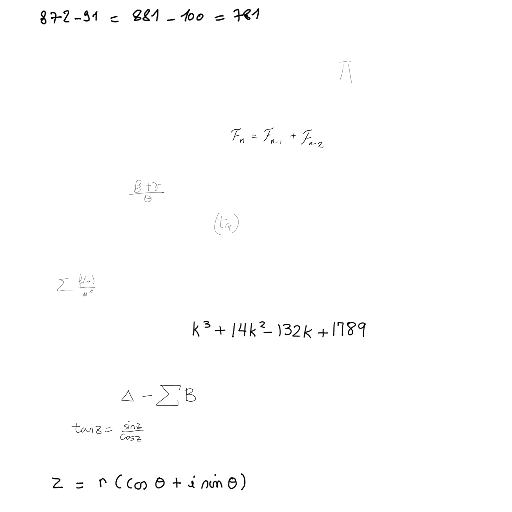 872-91 = 881-100 = 781
π
Fₙ = Fₙ₋₁ + Fₙ₋₂
k³ + 14k² - 132k + 1789
Δ - ∑B
tan z = sin z / cos z
z = r (cos θ + i sin θ)